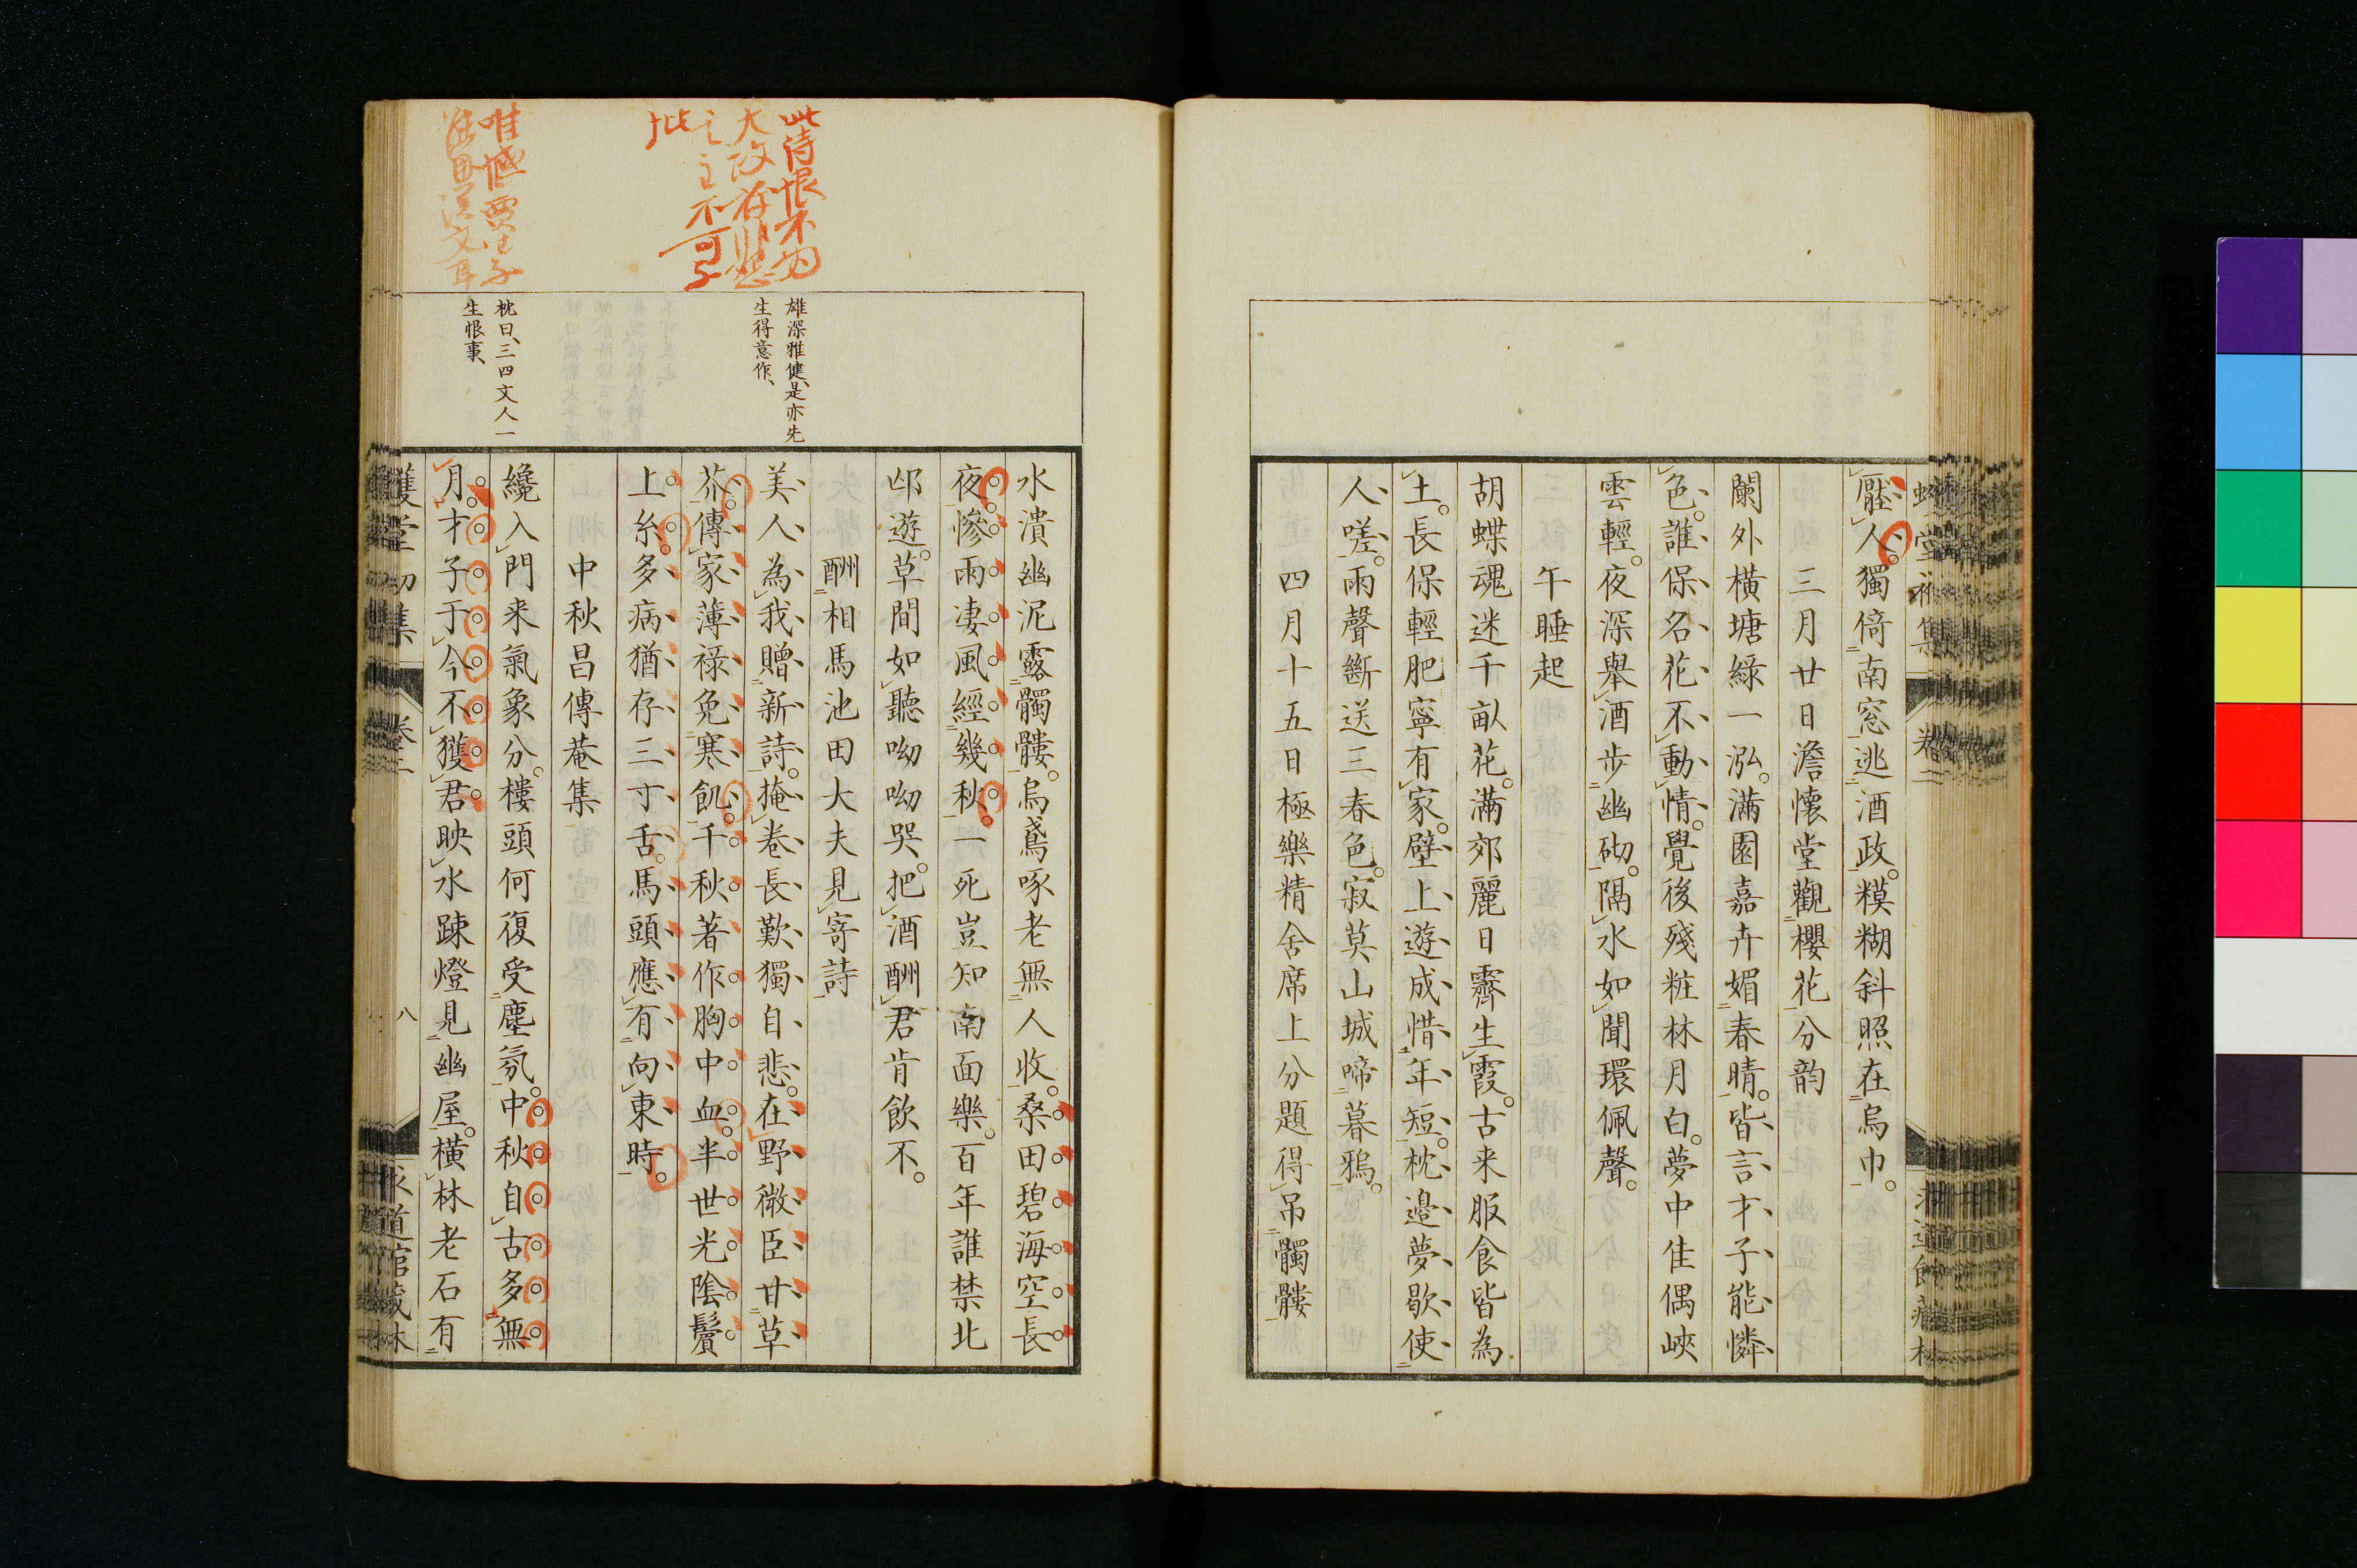 厭人。獨倚南窓逃酒政。糢糊斜照在烏巾。
三月廿日澹懷堂觀櫻花分韵
闌外橫塘綠一泓。滿園嘉卉媚春晴。皆言才子能憐
色。誰保名花不動情。覺後殘粧林月白。夢中佳偶峽
雲輕。夜深舉酒步幽砌。隔水如聞環佩聲。
午睡起
胡蝶魂迷千畝花。滿郊麗日霽生霞。古来服食皆為
土。長保輕肥寧有家。壁上遊成惜年短。枕邊夢歇使
人嗟。雨聲斷送三春色。寂莫山城啼暮鴉。
四月十五日極樂精舍席上分題得吊髑髏
水潰幽泥露髑髏。烏鳶啄老無人收。桑田碧海空長
夜。慘雨凄風經幾秋。一死豈知南面樂。百年誰禁北
邙遊。草間如聽呦呦哭。把酒酬君肯飲不。
酬相馬池田大夫見寄詩
美人為我贈新詩。掩卷長歎獨自悲。在野微臣甘草
芥。傳家薄祿免寒飢。千秋著作胸中血。半世光陰鬢
上糸。多病猶存三寸舌。馬頭應有向東時。
中秋昌傳菴集
纔入門来氣象分。樓頭何復受塵氛。中秋自古多無
月。才子于今不獲君。映水踈燈見幽屋。橫林老石有
雄深雅健、是亦先
生得意作、
枕曰、三四文人一
生恨事、
此詩恨不為
大改存悲
之主不可
批
卷二
八